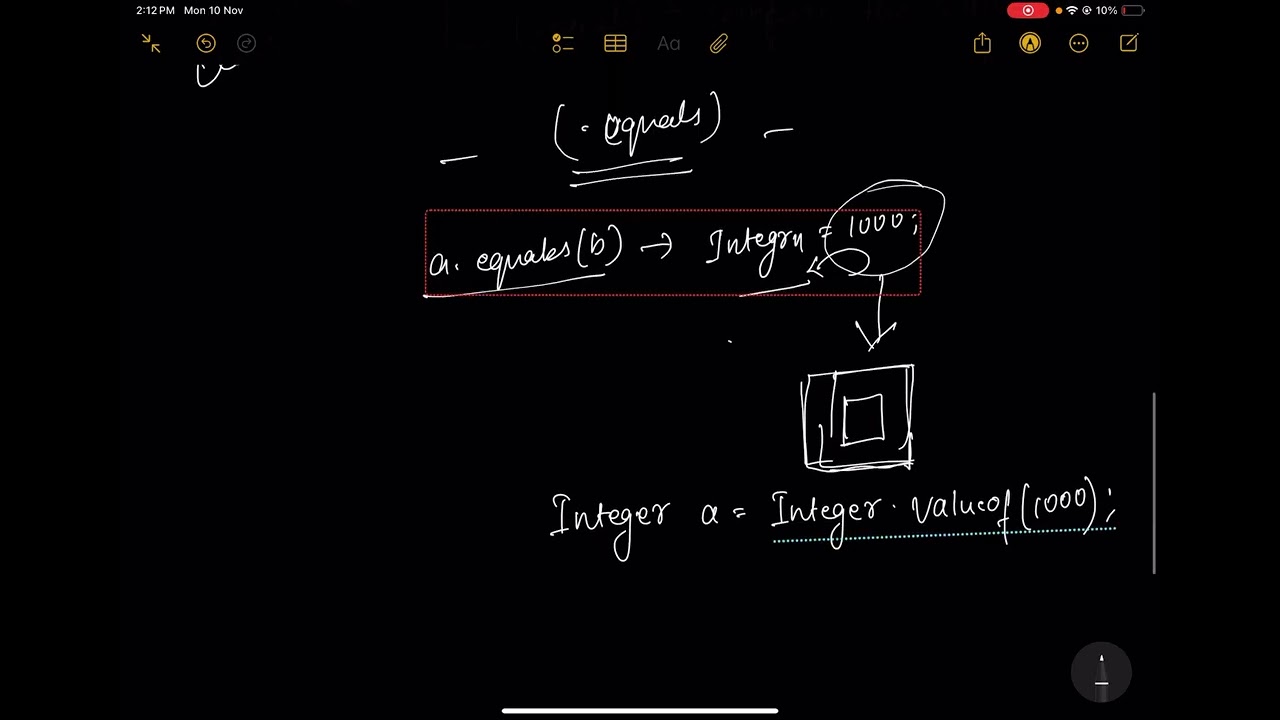 2:12 PM Mon 10 Nov 10%
Aa
(. equals)
a. equales(b) → Integer = 1000;
Integer a = Integer. Valueof (1000);